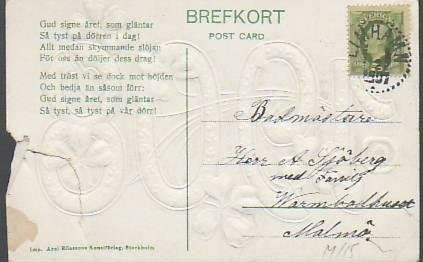 BREFKORT
POST CARD
Gud signe året, som gläntar
Så tyst på dörren i dag!
Allt medan skymmande slöjan
För oss än döljer dess drag!
Med tröst vi se dock mot höjden
Och bedja än såsom förr:
Gud signe året, som gläntar
Så tyst, så tyst på vår dörr!
SVERIGE
LIMHAMN
1907
Badmästare
Herr A Sjöberg
med Familj
Warmbadhuset
Malmö
M/15
Imp. Axel Eliassons Konstförlag, Stockholm